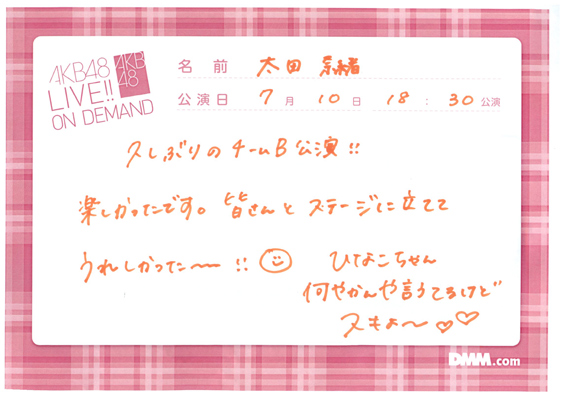 AKB48
LIVE!!
ON DEMAND
AKB
48
名前 太田 奈緒
公演日 7月 10日 18:30公演
久しぶりのチームB公演!!
楽しかったです。皆さんと ステージに立てて
うれしかった〜!!
ひなこちゃん
何やかんや言うてるけど
スキよ〜♡♡
DMM.com